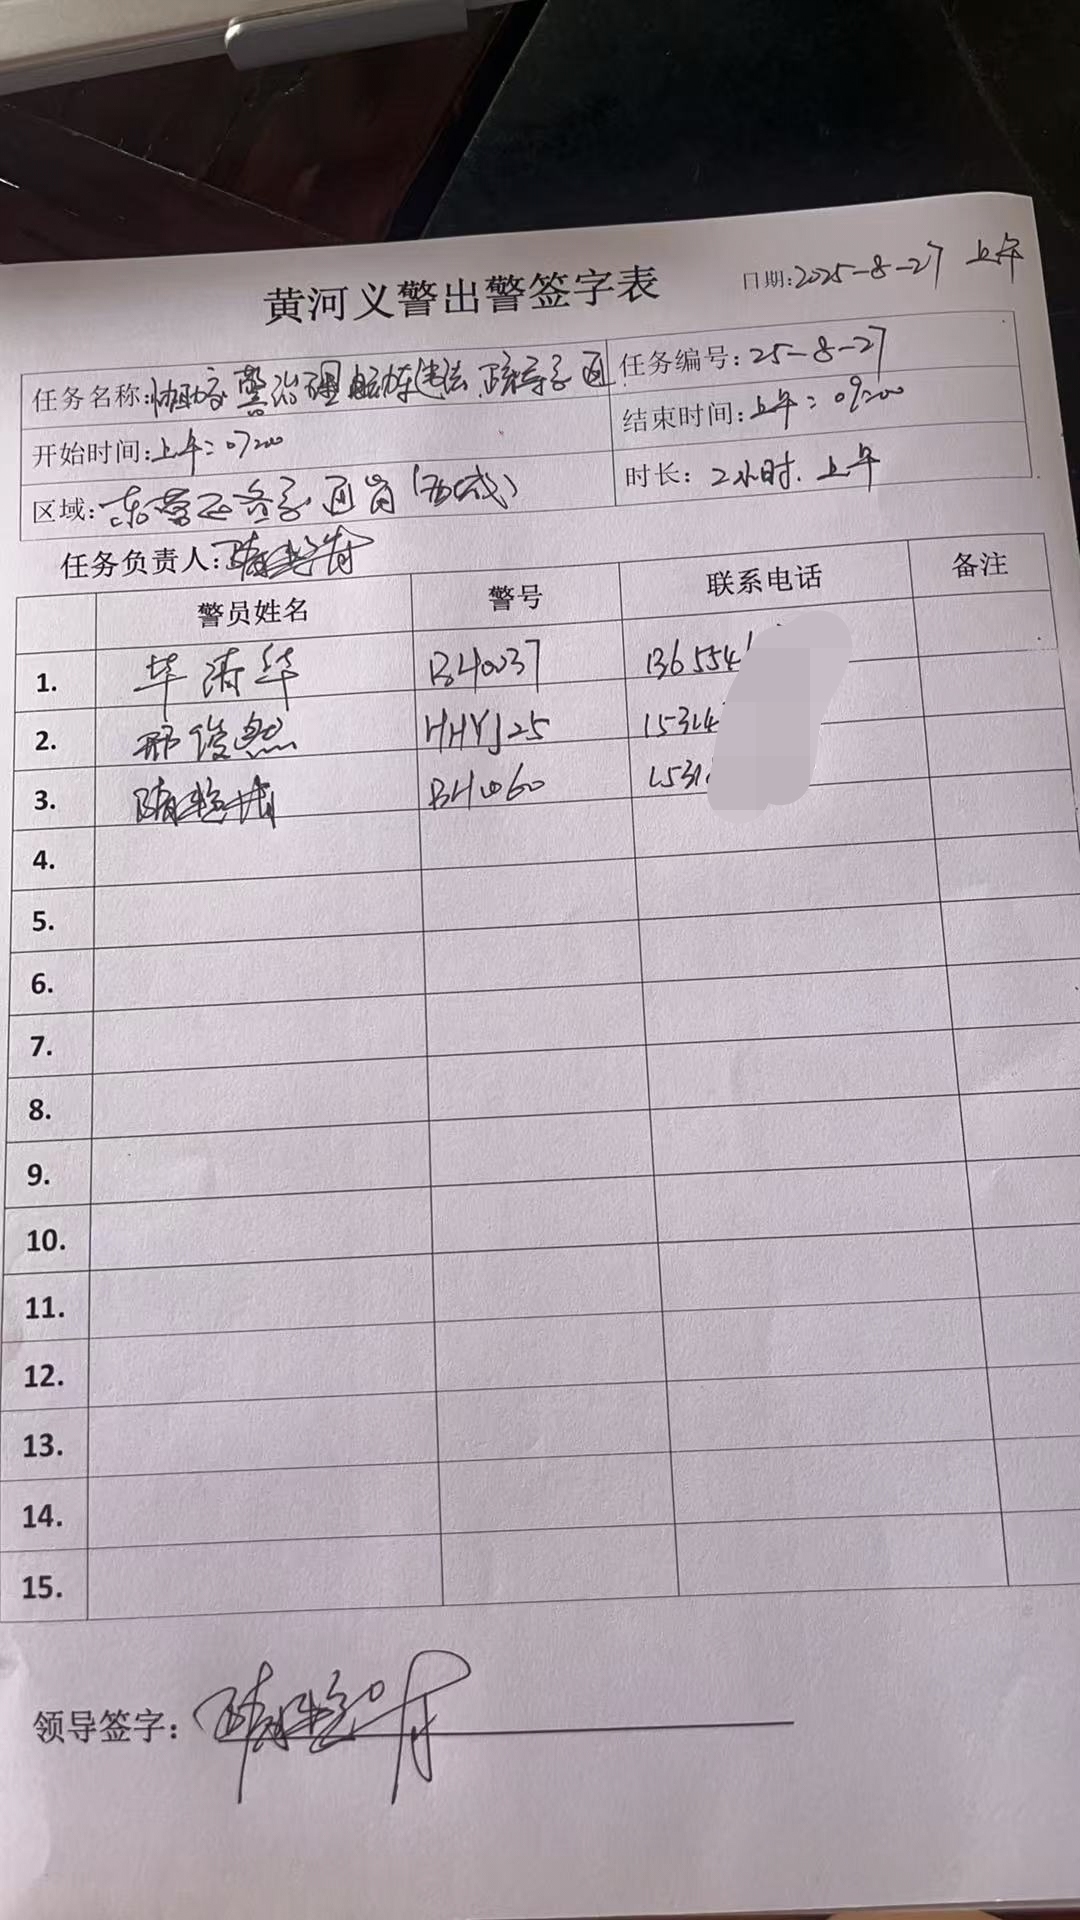 黄河义警出警签字表
日期:2025-8-27 上午
任务名称:协助交警治理 违法.疏导交通
任务编号:25-8-27
开始时间:上午:07:00
结束时间:上午:09:00
区域:东营 交通岗(西城)
时长:2小时.上午
任务负责人:
警员姓名 警号 联系电话 备注
1. 毕清华 BH0037 136554
2. 邢俊然 HHYJ25 15314
3. BH0060 1531
4.
5.
6.
7.
8.
9.
10.
11.
12.
13.
14.
15.
领导签字: